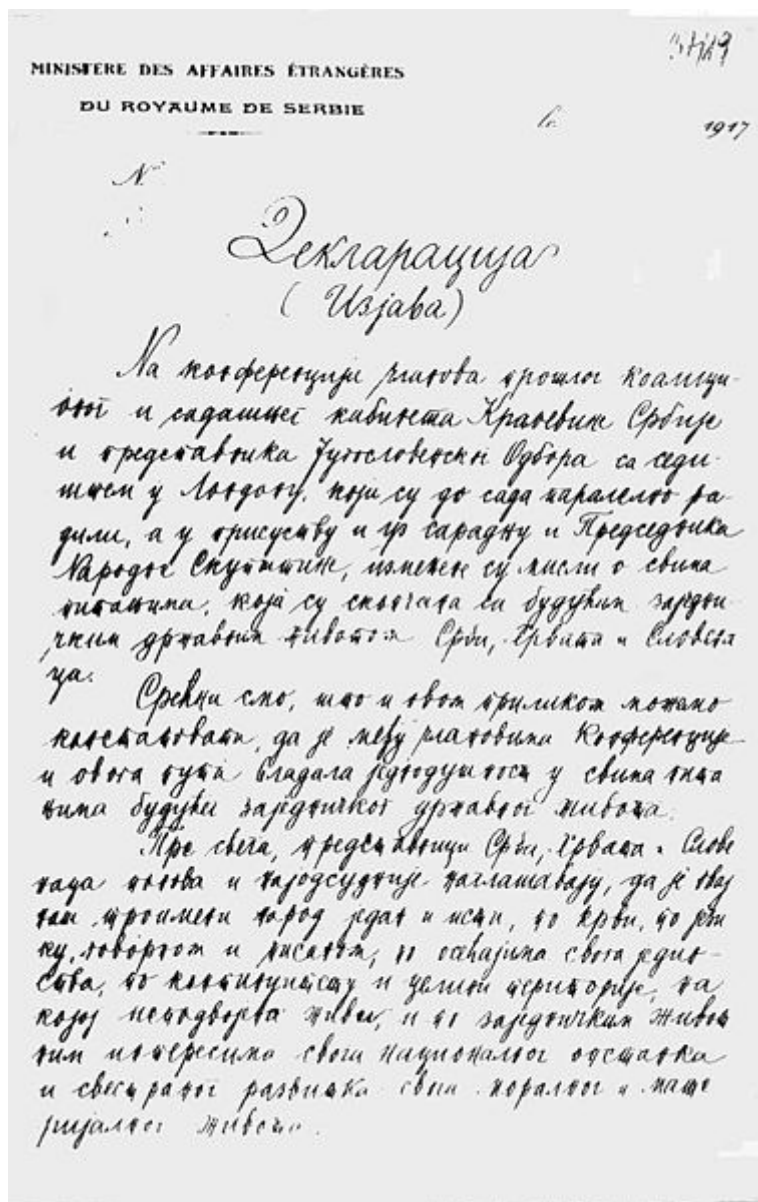 MINISTERE DES AFFAIRES ÉTRANGÈRES
DU ROYAUME DE SERBIE
1917
N
Декларација
(Изјава)
На конференцији чланова прошлог коалици-
оног и садашњег кабинета Краљевине Србије
и представника Југословенског Одбора са седи-
штем у Лондону, који су до сада паралелно ра-
дили, а у присуству и уз сарадњу и Председника
Народне Скупштине, измењене су мисли о свима
питањима, која су скопчана са будућим заједни-
чким државним животом Срба, Хрвата и Словена
ца.
Срећни смо, што и овом приликом можемо
констатовати, да је међу члановима Конференције
и овога пута владала једнодушност у свима пита
њима будућег заједничког државног живота.
Пре свега, представници Срба, Хрвата и Слове
наца понова и најодсудније наглашавају, да је овај
наш троимени народ један и исти, по крви, по јези
ку, говорном и писаном, по осећајима свога једин-
ства, по континуитету и целини територије, на
којој неподвојено живи, и по заједничким живот
ним интересима свога националног опстанка
и свестраног развитка свога моралног и мате
ријалног живота.